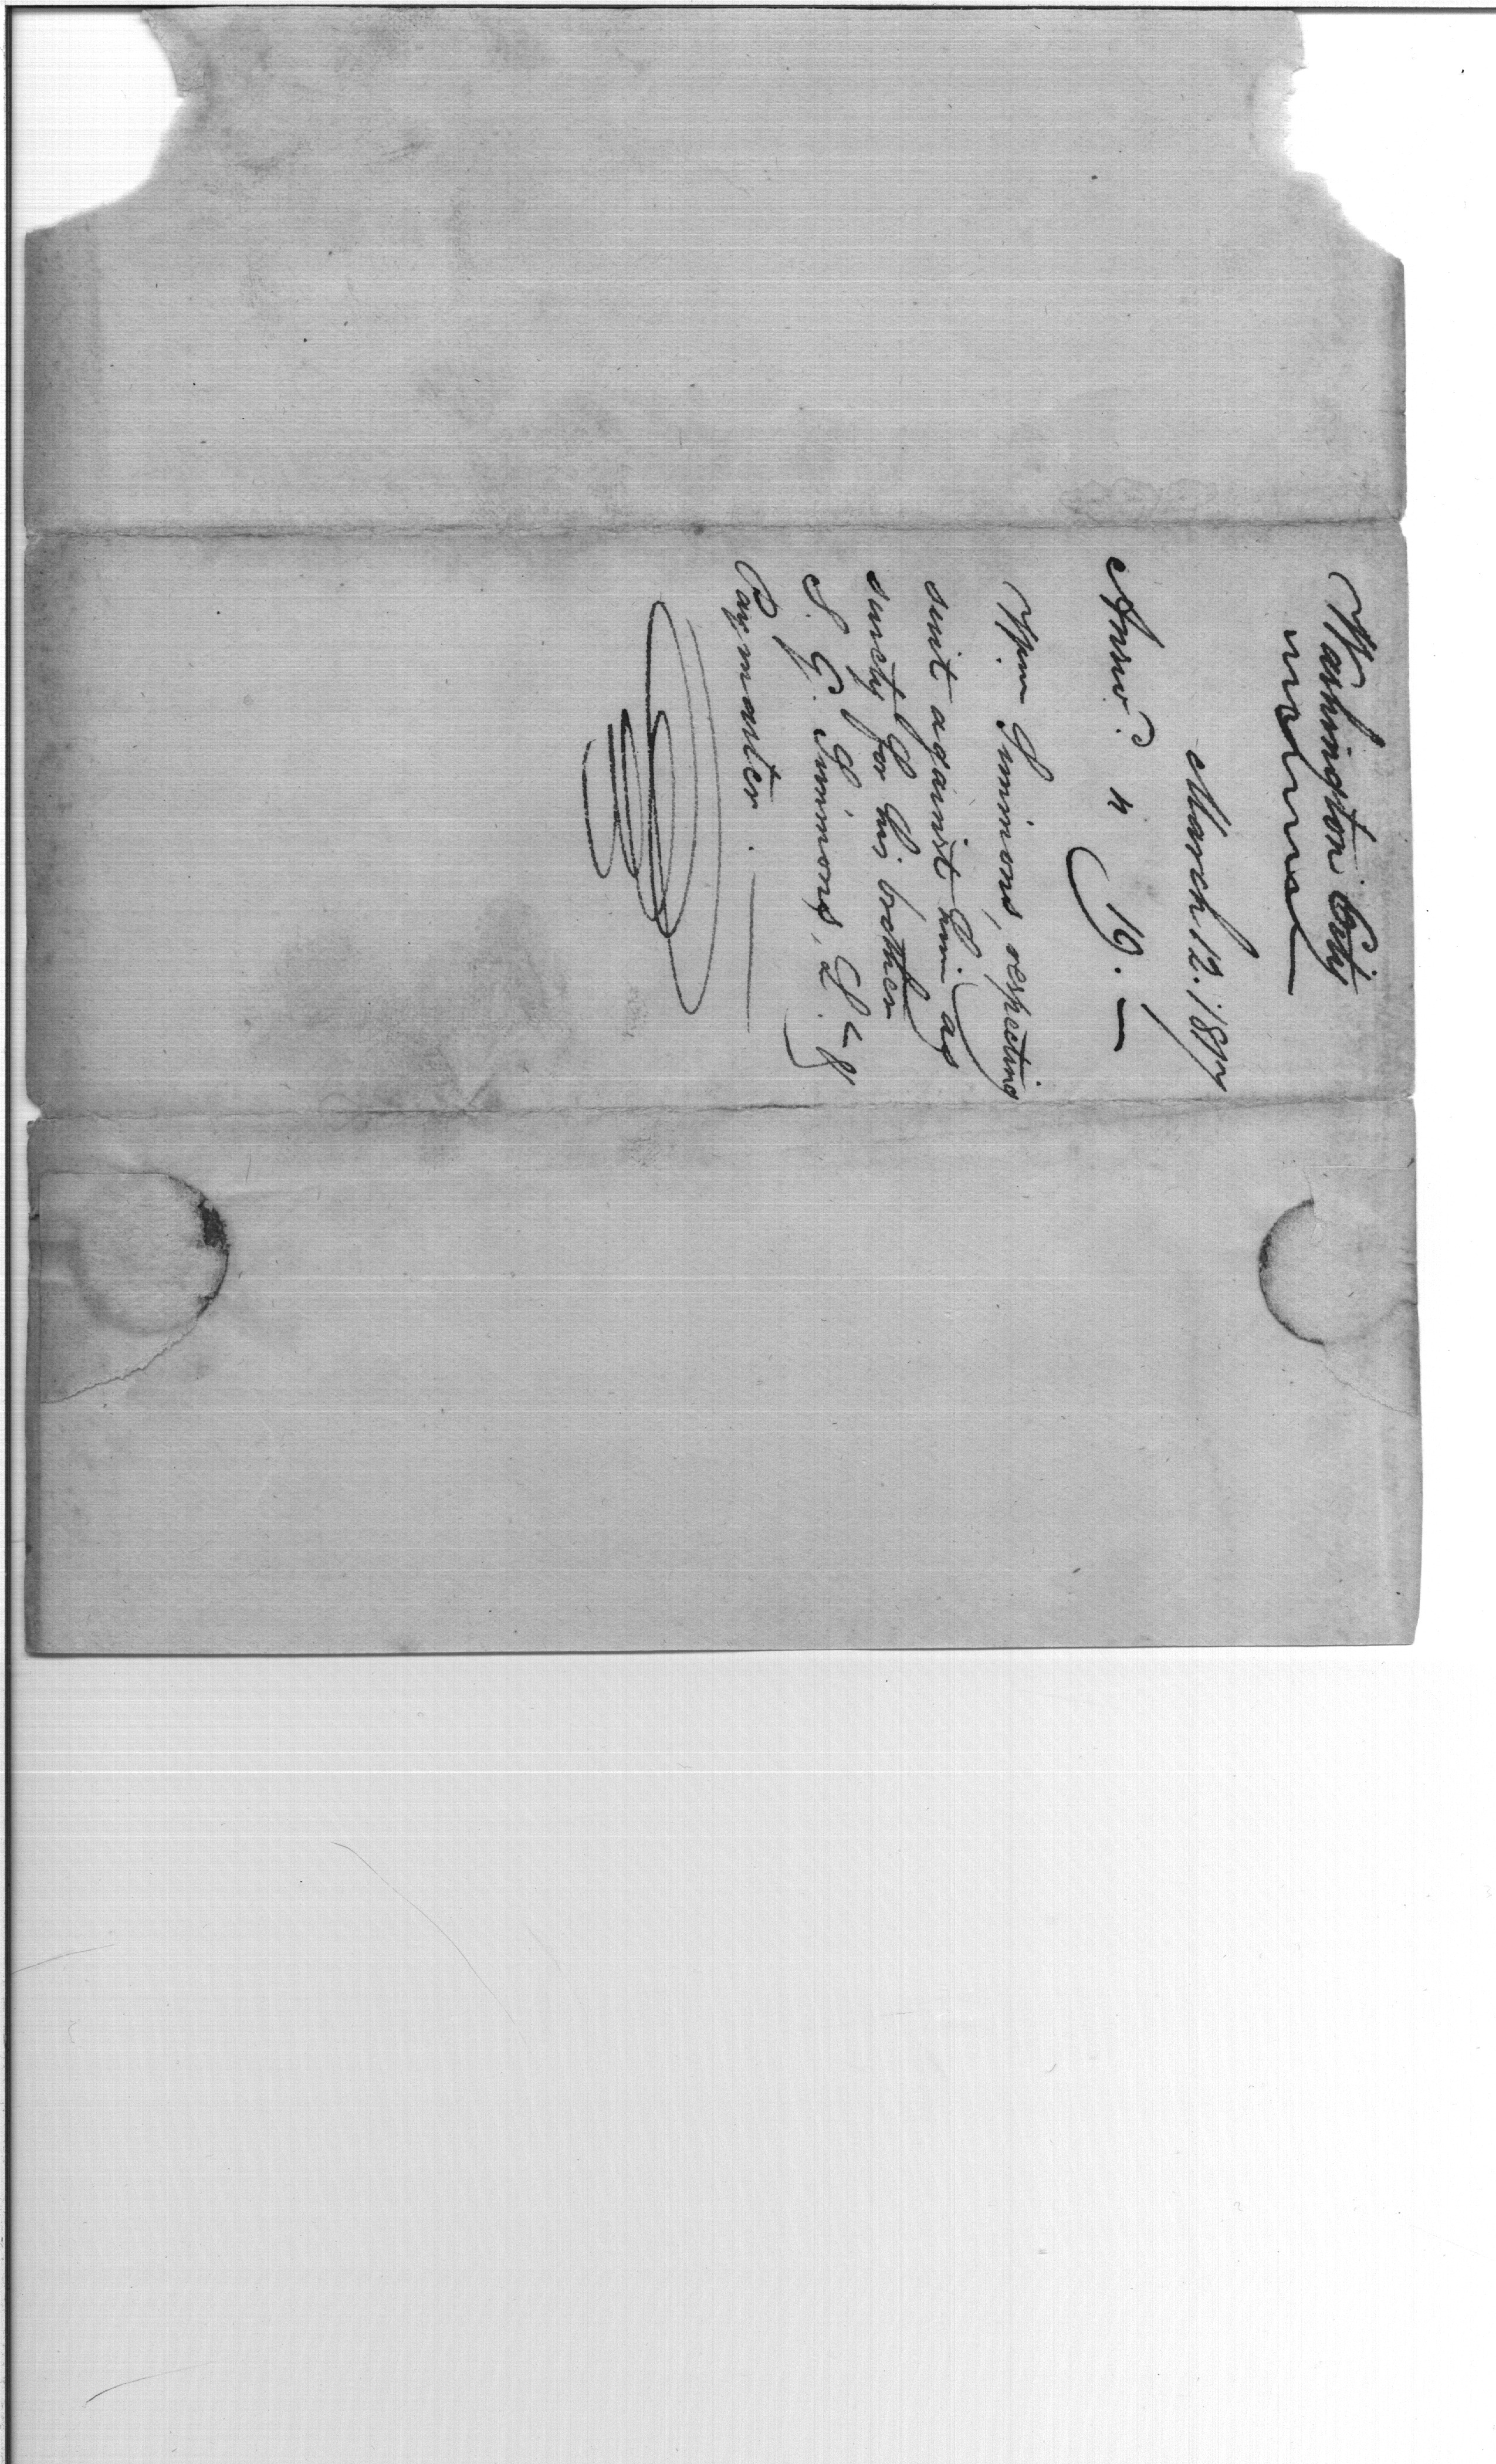 Washington City
March 12. 18
Answd. " 19. —
Wm Simmons, respecting
suit against him as
surety for his brother
S. G. Simmons, Lt &
Paymaster. —